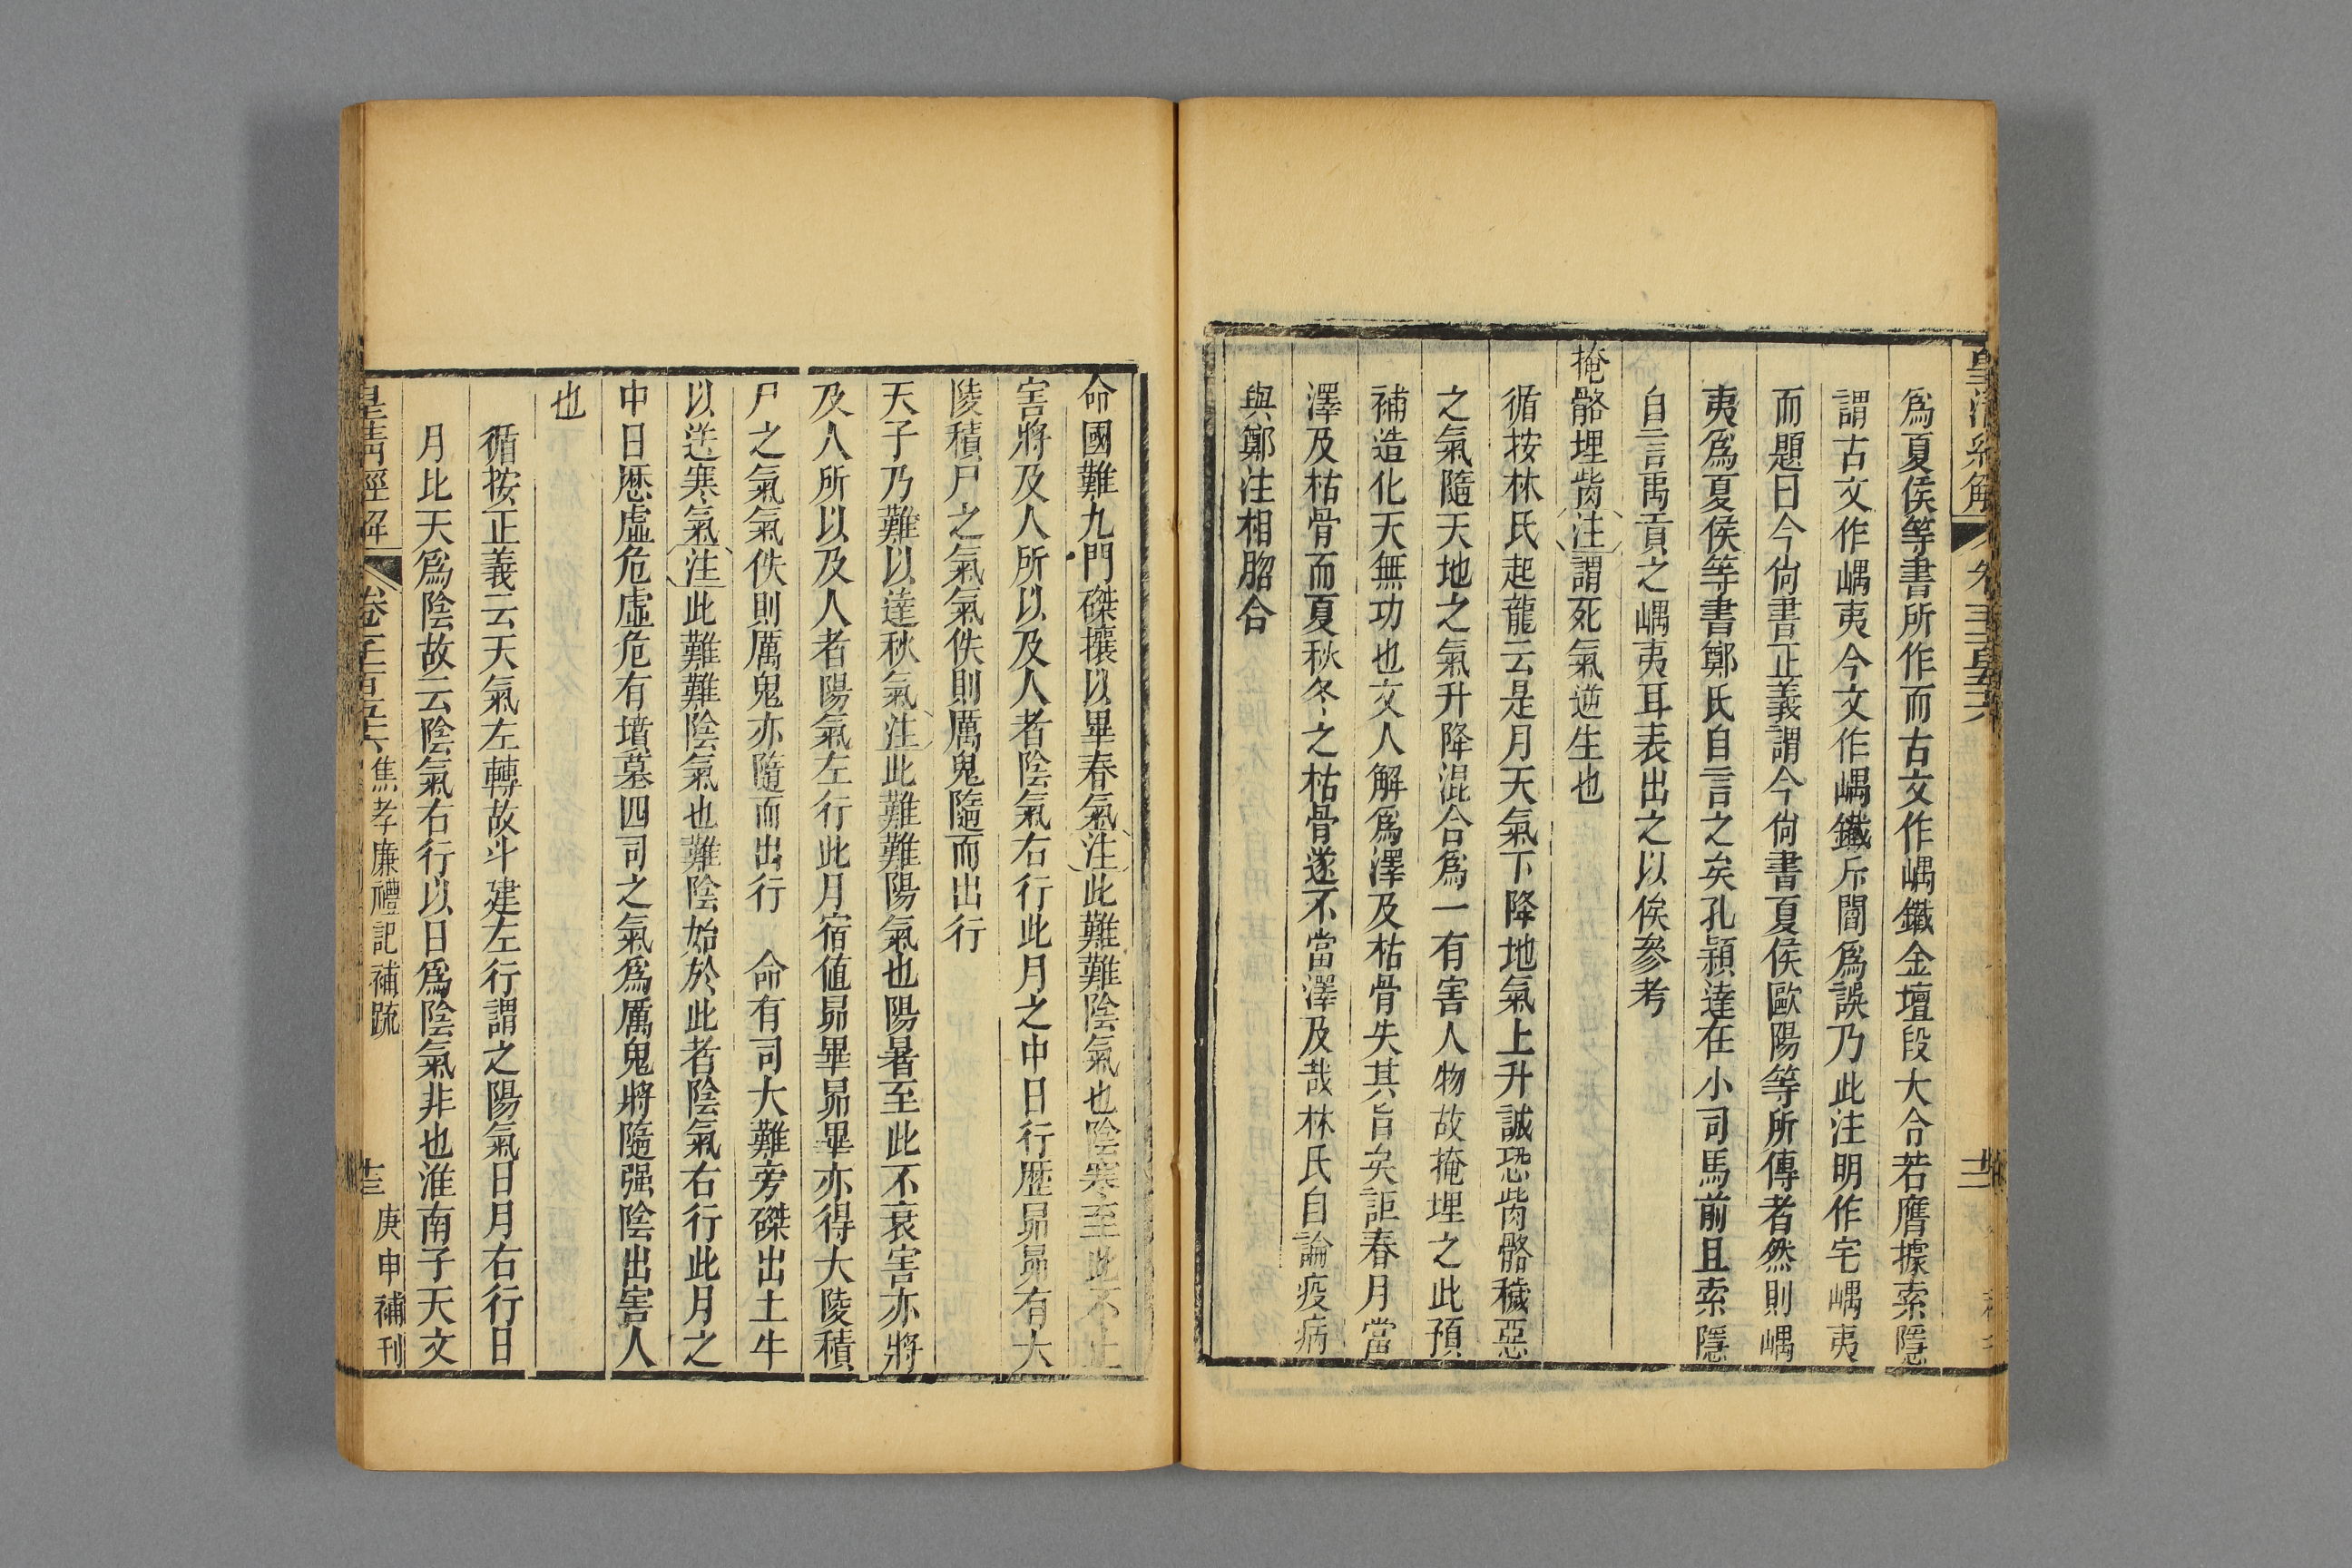 爲夏侯等書所作而古文作嵎鐵金壇段大令若膺據索隱
謂古文作嵎夷今文作嵎鐵斥閻爲誤乃此注明作宅嵎夷
而題曰今尙書正義謂今尙書夏侯歐陽等所傳者然則嵎
夷爲夏侯等書鄭氏自言之矣孔頴達在小司馬前且索隱
自言禹貢之嵎夷耳表出之以俟參考
掩骼埋胔注謂死氣逆生也
循按林氏起龍云是月天氣下降地氣上升誠恐胔骼穢惡
之氣隨天地之氣升降混合爲一有害人物故掩埋之此預
補造化天無功也文人解爲澤及枯骨失其旨矣詎春月當
澤及枯骨而夏秋冬之枯骨遂不當澤及哉林氏自論疫病
與鄭注相脗合
命國難九門磔攘以畢春氣注此難難陰氣也陰寒至此不止
害將及人所以及人者陰氣右行此月之中日行歷昴昴有大
陵積尸之氣氣佚則厲鬼隨而出行
天子乃難以達秋氣注此難難陽氣也陽暑至此不衰害亦將
及人所以及人者陽氣左行此月宿値昴畢昴畢亦得大陵積
尸之氣氣佚則厲鬼亦隨而出行　命有司大難旁磔出土牛
以送寒氣注此難難陰氣也難陰始於此者陰氣右行此月之
中日歷虛危虛危有墳墓四司之氣爲厲鬼將隨强陰出害人
也
循按正義云天氣左轉故斗建左行謂之陽氣日月右行日
月比天爲陰故云陰氣右行以日爲陰氣非也淮南子天文
皇清經解 卷 焦孝廉禮記補疏 十三 庚申補刊